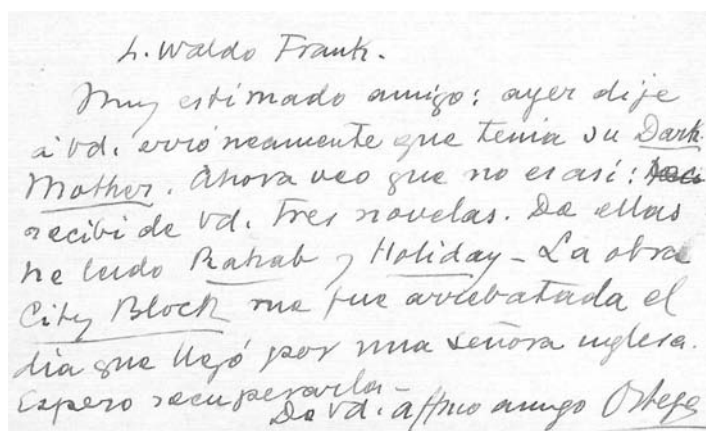 S. Waldo Frank.
Muy estimado amigo: ayer dije
a Vd. erróneamente que tenía su Dark
Mother. Ahora veo que no es así:
recibí de Vd. tres novelas. De ellas
he leido Rahab y Holiday - La obra
City Block me fue arrebatada el
día que llegó por una señora inglesa.
Espero recuperarla -
De Vd. affmo amigo Ortega